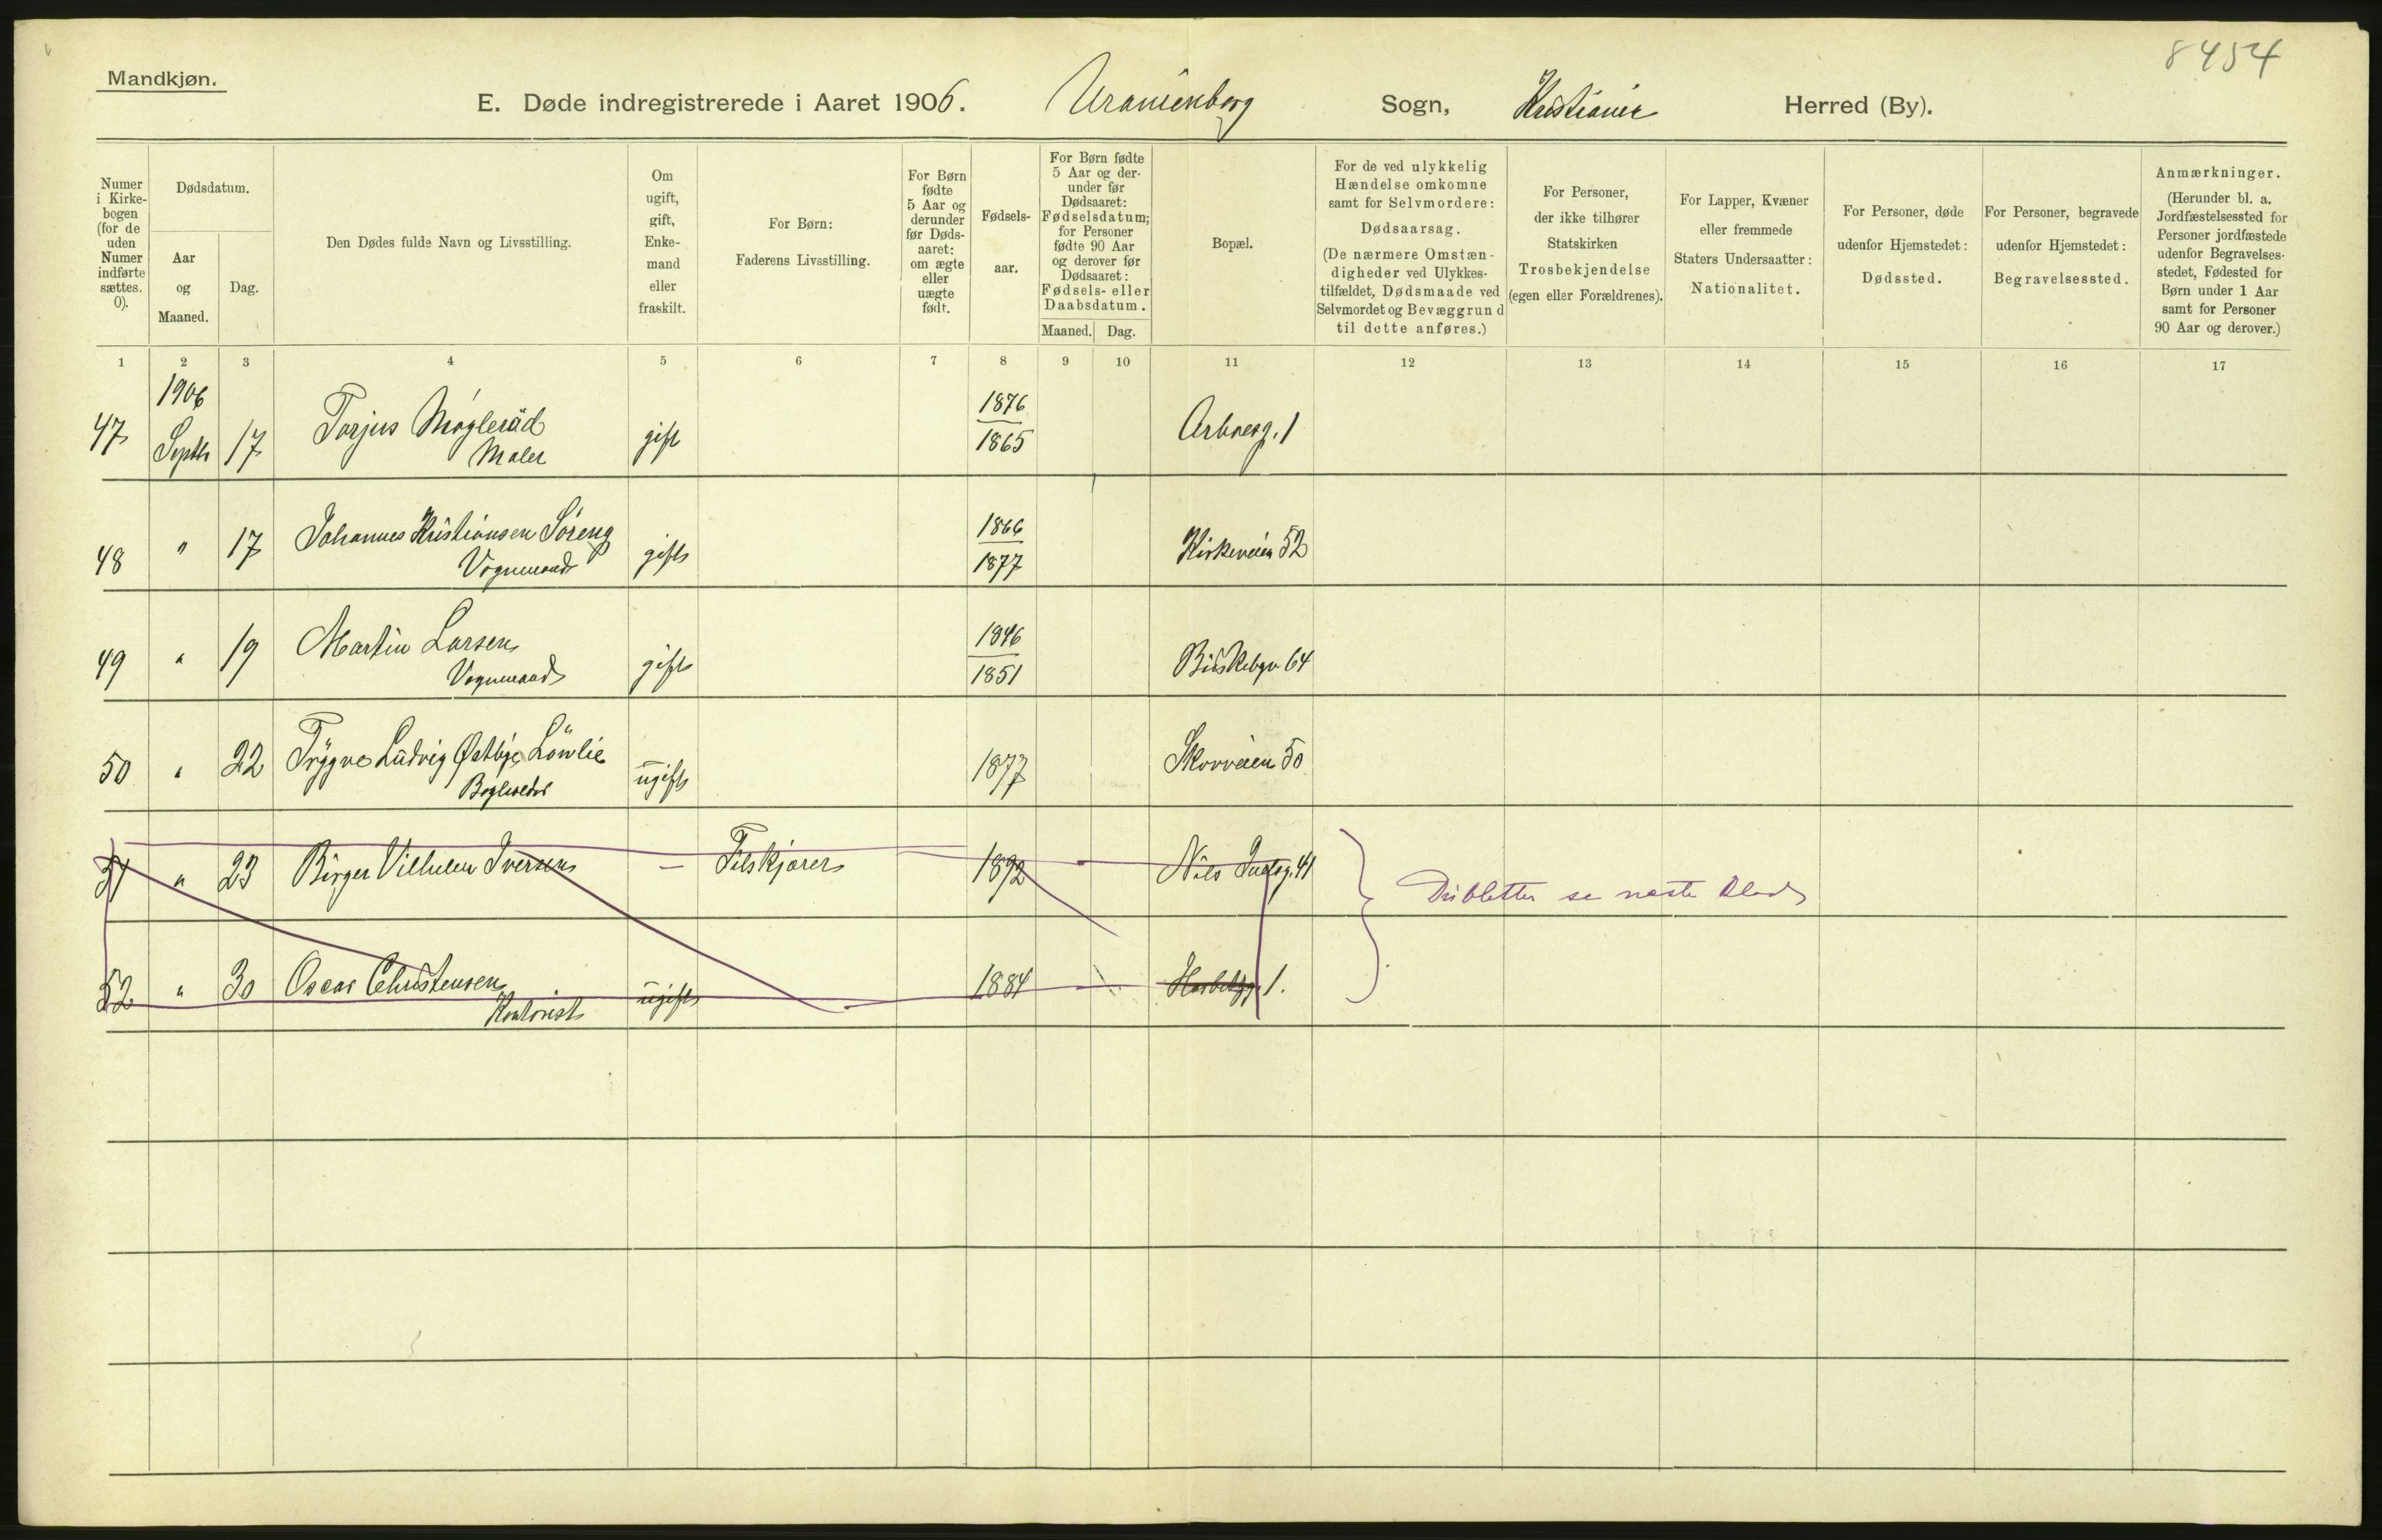 8454
Mandkjøn.
E. Døde indregistrerede i Aaret 1906. Uranienborg Sogn, Kristiania Herred (By).
Numer i Kirke-bogen (for de uden Numer indførte sættes. 0).
Dødsdatum.
Aar og Maaned.
Dag.
Den Dødes fulde Navn og Livsstilling.
Om ugift, gift, Enke-mand eller fraskilt.
For Børn: Faderens Livsstilling.
For Børn fødte 5 Aar og derunder før Døds-aaret: om ægte eller uægte født.
Fødsels-aar.
For Børn fødte 5 Aar og der-under før Dødsaaret: Fødselsdatum; for Personer fødte 90 Aar og derover før Dødsaaret: Fødsels- eller Daabsdatum.
Maaned. Dag.
Bopæl.
For de ved ulykkelig Hændelse omkomne samt for Selvmordere: Dødsaarsag. (De nærmere Omstæn-digheder ved Ulykkes-tilfældet, Dødsmaade ved Selvmordet og Bevæggrund til dette anføres.)
For Personer, der ikke tilhører Statskirken Trosbekjendelse (egen eller Forældrenes).
For Lapper, Kvæner eller fremmede Staters Undersaatter: Nationalitet.
For Personer, døde udenfor Hjemstedet: Dødssted.
For Personer, begravede udenfor Hjemstedet: Begravelsessted.
Anmærkninger. (Herunder bl. a. Jordfæstelsessted for Personer jordfæstede udenfor Begravelses-stedet, Fødested for Børn under 1 Aar samt for Personer 90 Aar og derover.)
1 2 3 4 5 6 7 8 9 10 11 12 13 14 15 16 17
1906
47 Septb 17 Torjus Mogleråd gift 1876 1865 Arboesg. 1
Maler
48 " 17 Johannes Kristiansen Söreng gift 1866 1877 Kirkeveien 52
Vognmand
49 " 19 Martin Larsen gift 1846 1851 64
Vognmand
50 " 22 Trygve Ludvig Østbye Löwlie ugift 1877 Skovveien 50
51 " 23 Birger Vilhelm Iversen — 1892 Nils Juelsg. 41
Dubletter se næste Blad
52 " 30 Oscar Christensen ugift 1884 1.
Kontorist